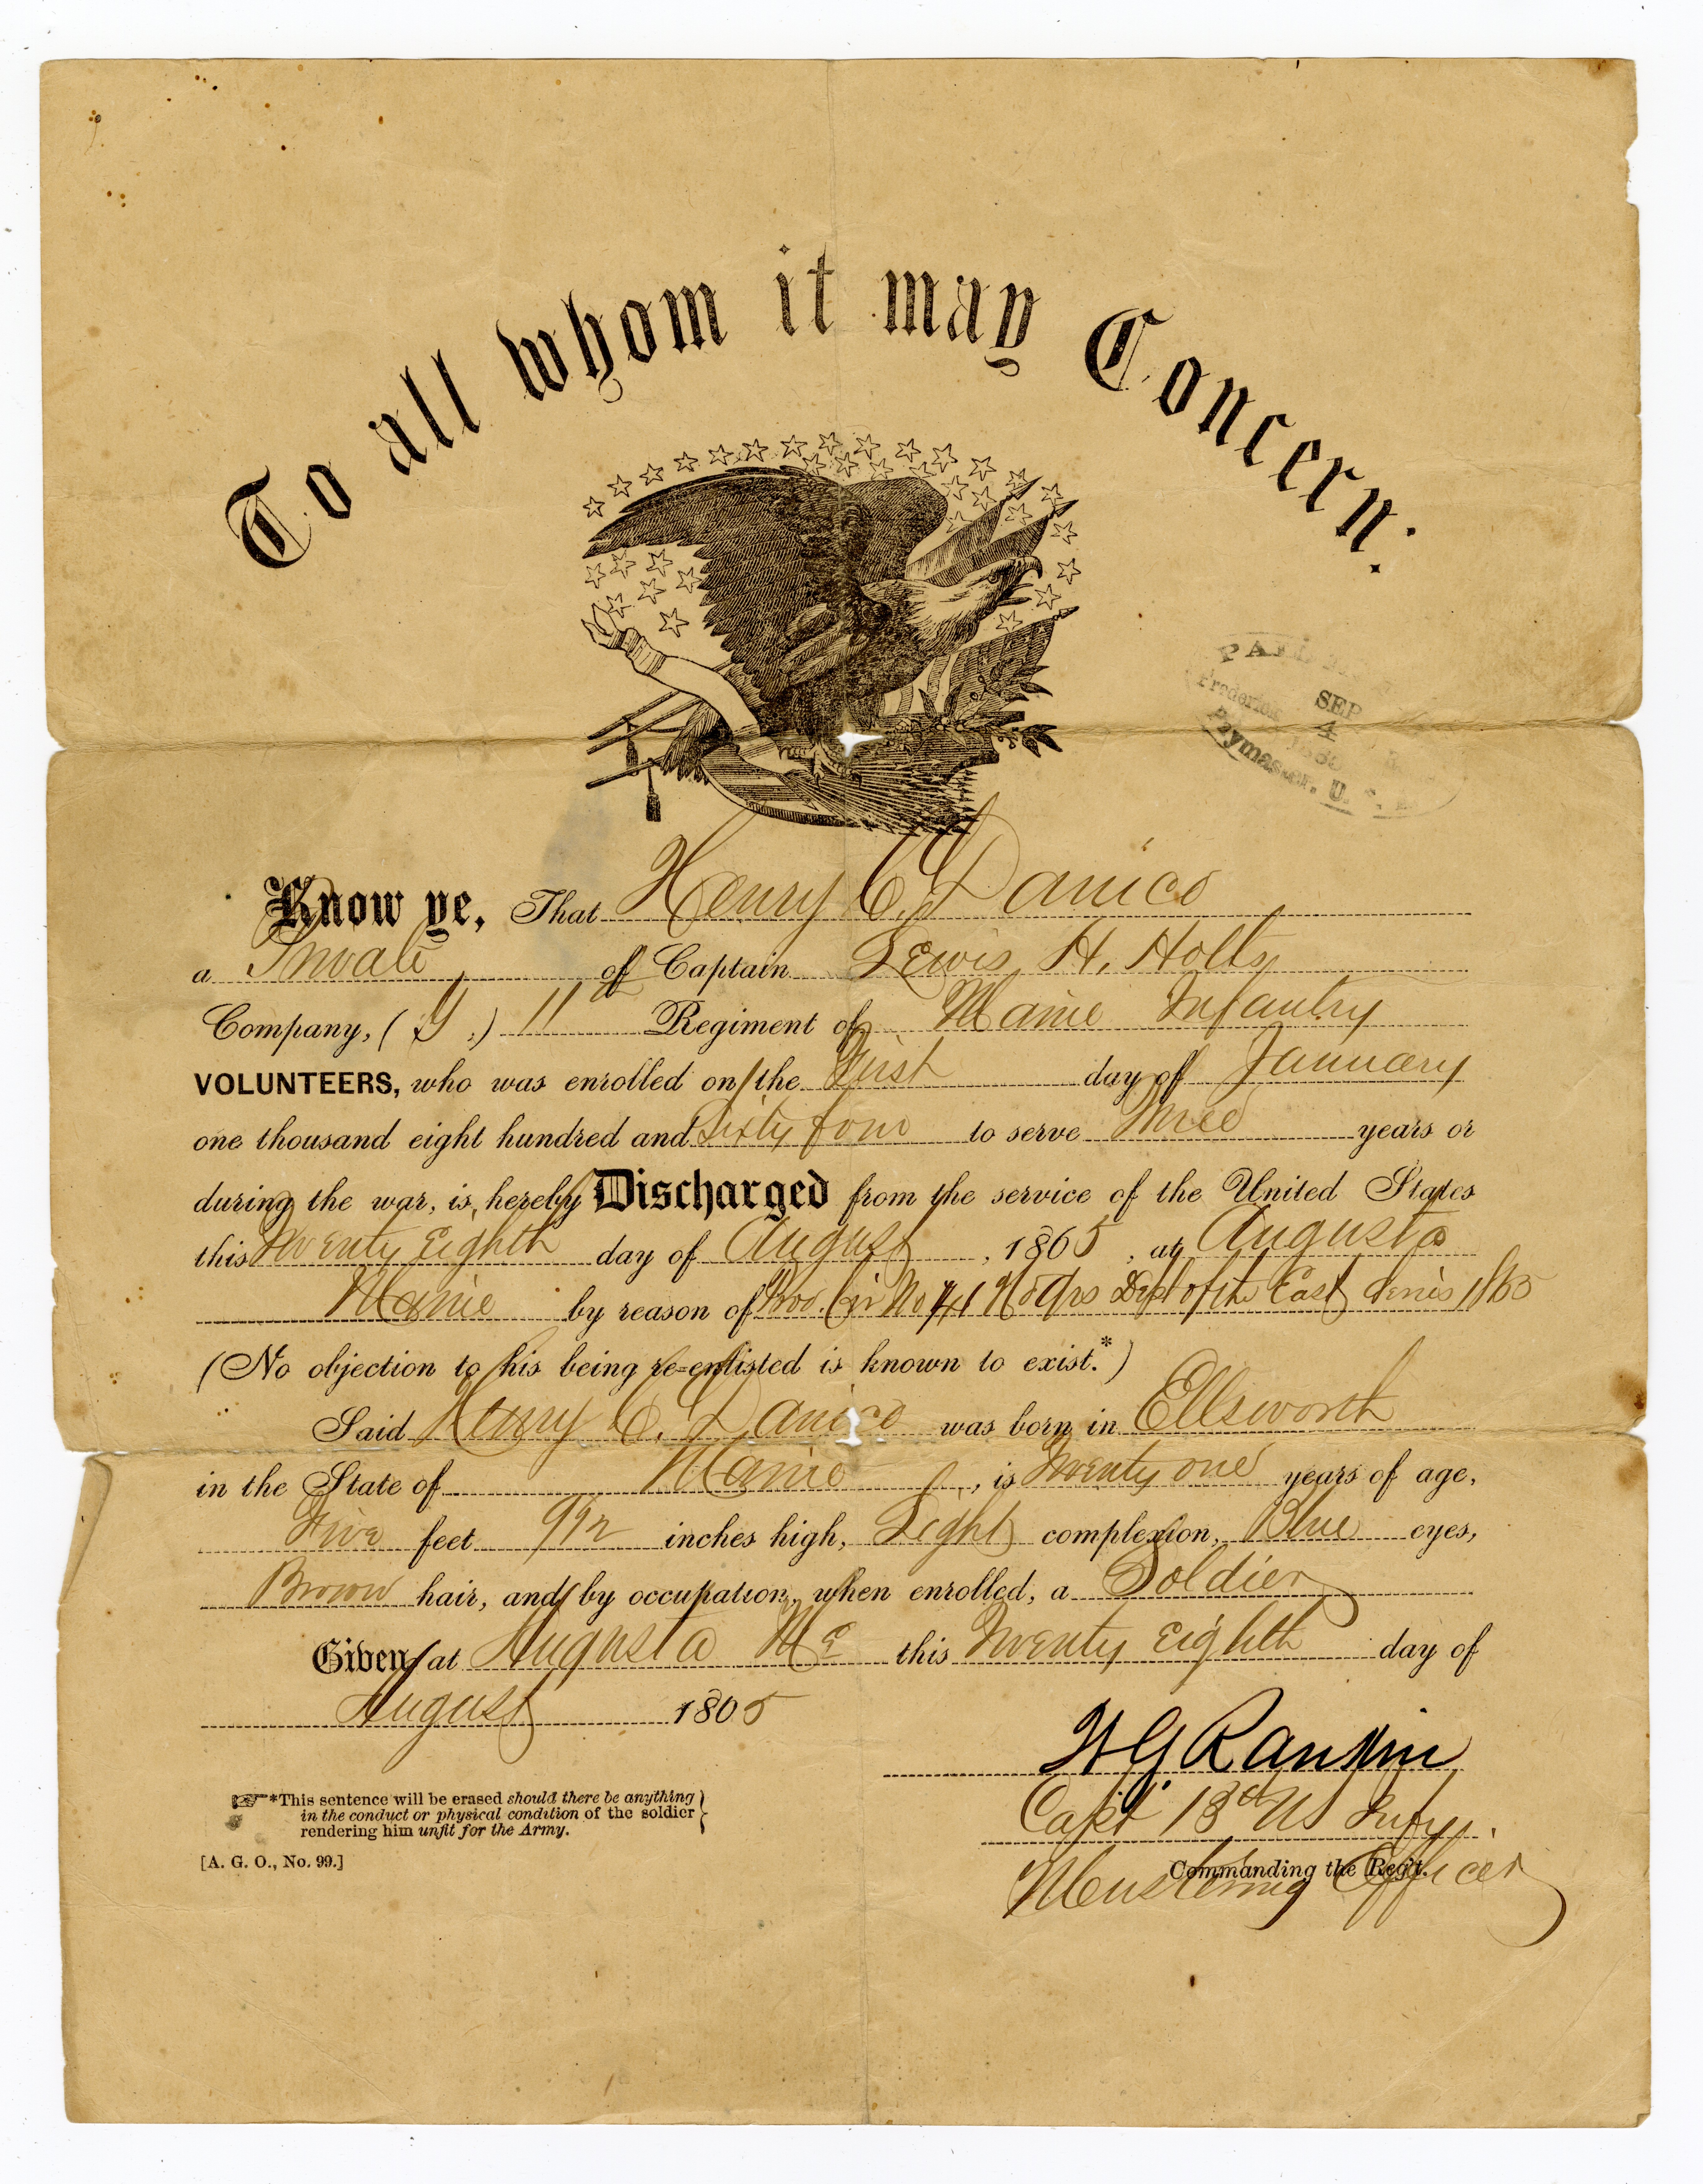 To all whom it may Concern:
SEP
4
Paymaster, U. S.
Know ye, That Henry C.
a Private of Captain Lewis H. Holt
Company, (G.) 11th Regiment of Maine Infantry
VOLUNTEERS, who was enrolled on the First day of January
one thousand eight hundred and Sixty four to serve Three years or
during the war, is hereby Discharged from the service of the United States
this Twenty Eighth day of August, 1865, at Augusta
Maine by reason of Cir No 41 Hd Qrs Dept of the East 1865
(No objection to his being re-enlisted is known to exist.*)
Said Henry C. was born in Ellsworth
in the State of Maine, is Twenty one years of age,
Five feet 9 1/2 inches high, Light complexion, Blue eyes,
Brown hair, and by occupation, when enrolled, a Soldier
Given at Augusta Me this Twenty Eighth day of
August 1865
W G Rankin
Capt 13th US Infy.
Commanding the Reg't.
Mustering Officer
*This sentence will be erased should there be anything
in the conduct or physical condition of the soldier
rendering him unfit for the Army.
[A. G. O., No. 99.]